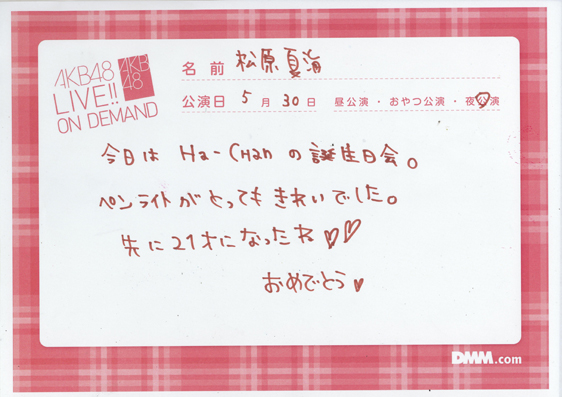 AKB48
LIVE!!
ON DEMAND
AKB
48
名 前 松原夏海
公演日 5 月 30 日 昼公演・おやつ公演・夜公演
今日は Ha-Chan の誕生日会。
ペンライトがとってもきれいでした。
先に21才になったね♡♡
おめでとう♥
DMM.com